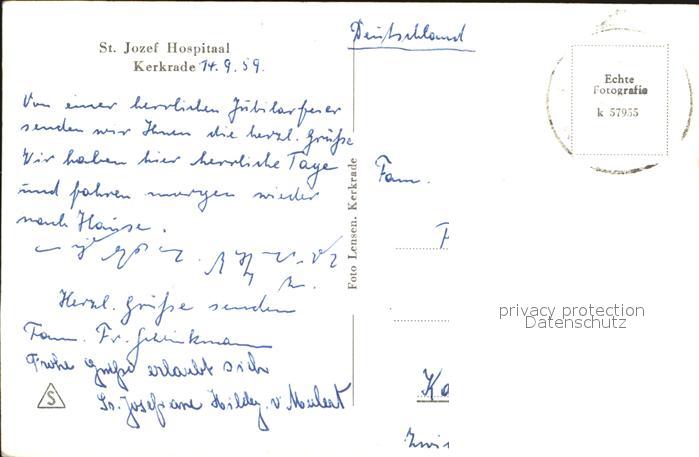 St. Jozef Hospitaal
Kerkrade 14.9.59.
Von einer herrlichen Jubilarfeier
senden wir Ihnen die herzl. Grüße
Wir haben hier herrliche Tage
und fahren morgen wieder
nach Hause.
Herzl. Grüße senden
Fam. Fr.
Frohe Grüße erlaubt sich
Sr. Josefiane Hildeg. v.
S
Foto Lensen. Kerkrade
Deutschland
Echte
Fotografie
k 57955
Fam.
privacy protection
Datenschutz